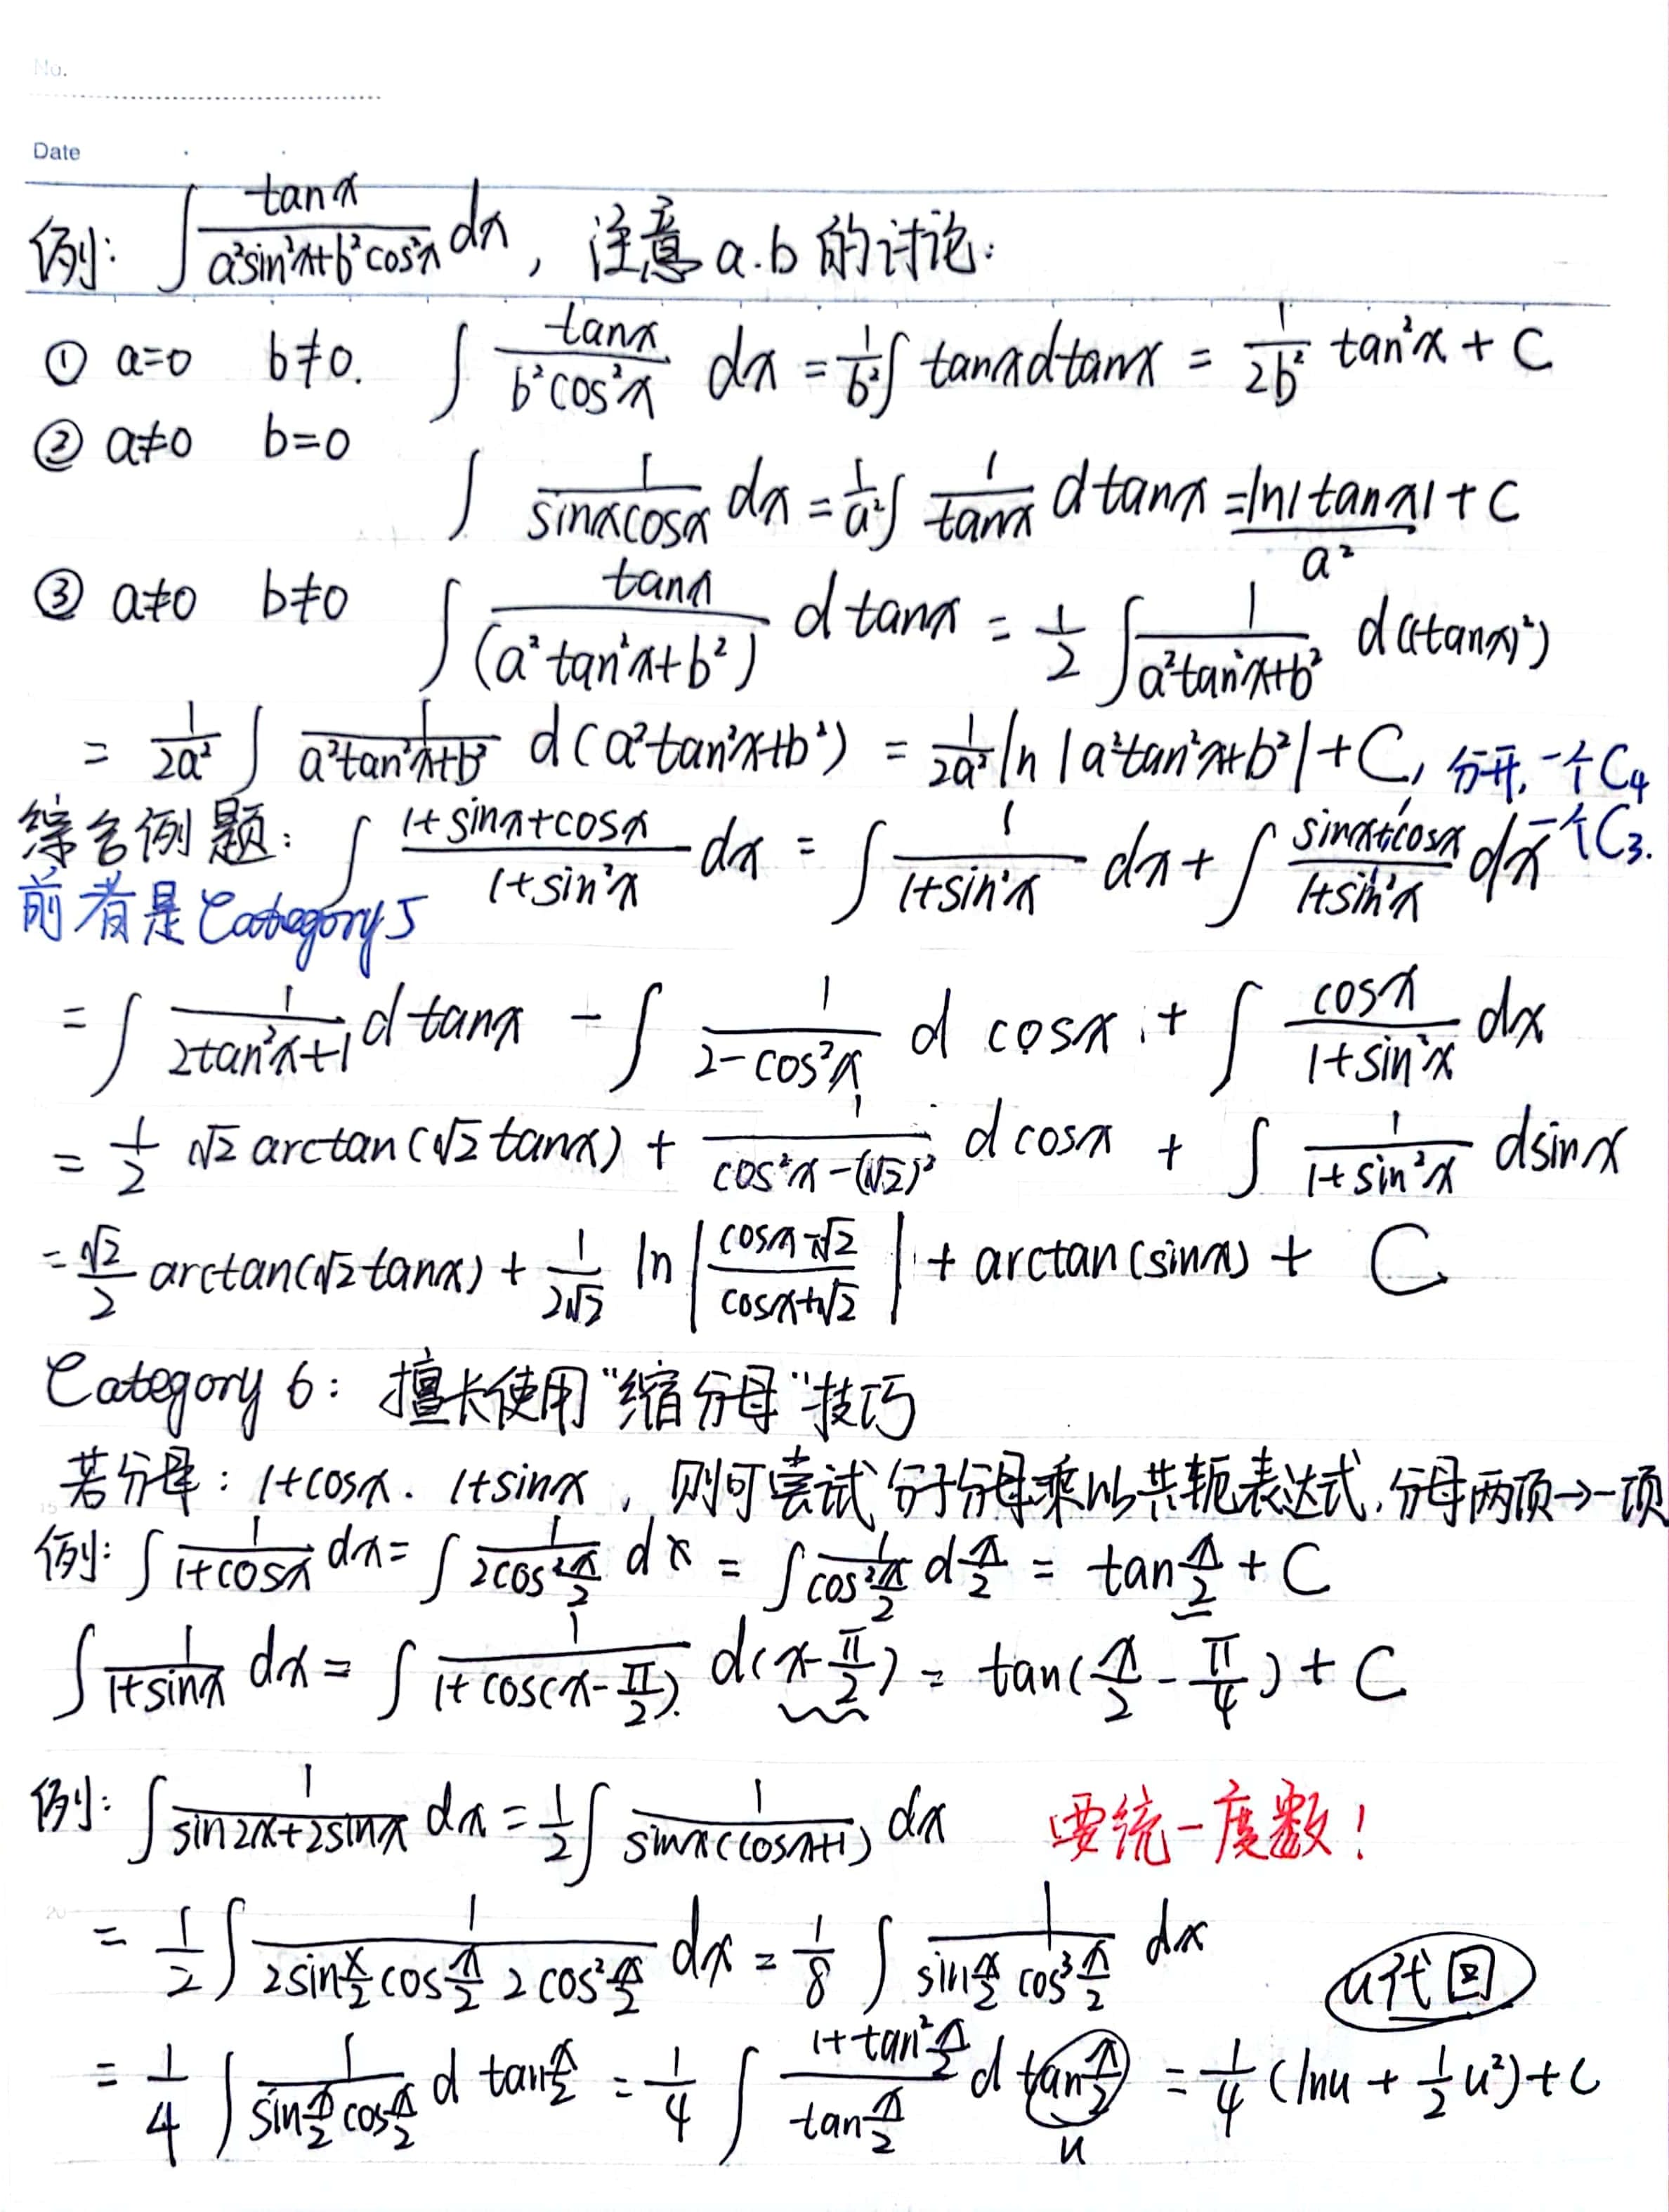 No.
Date
例: ∫ tanx/(a²sin²x+b²cos²x) dx, 注意 a.b 的讨论:
① a=0 b≠0. ∫ tanx/(b²cos²x) dx = 1/b² ∫ tanx dtanx = 1/(2b²) tan²x + C
② a≠0 b=0
∫ 1/(sinxcosx) dx = 1/a² ∫ 1/tanx d tanx = ln|tanx|/a² + C
③ a≠0 b≠0 ∫ tanx/(a²tan²x+b²) d tanx = 1/2 ∫ 1/(a²tan²x+b²) d((tanx)²)
= 1/(2a²) ∫ 1/(a²tan²x+b²) d(a²tan²x+b²) = 1/(2a²) ln|a²tan²x+b²| + C, 分开, 一个C₄
综合例题: ∫ (1+sinx+cosx)/(1+sin²x) dx = ∫ 1/(1+sin²x) dx + ∫ (sinx+cosx)/(1+sin²x) dx 一个C₃.
前者是Category 5
= ∫ 1/(2tan²x+1) d tanx - ∫ 1/(2-cos²x) d cosx + ∫ cosx/(1+sin²x) dx
= 1/2 √2 arctan(√2 tanx) + 1/(cos²x-(√2)²) d cosx + ∫ 1/(1+sin²x) dsinx
= √2/2 arctan(√2 tanx) + 1/(2√2) ln|(cosx-√2)/(cosx+√2)| + arctan(sinx) + C
Category 6: 擅长使用"缩分母"技巧
若分母: 1+cosx. 1+sinx, 则可尝试分子分母乘以共轭表达式, 分母两项→一项
例: ∫ 1/(1+cosx) dx = ∫ 1/(2cos²x/2) dx = ∫ 1/(cos²x/2) d x/2 = tan x/2 + C
∫ 1/(1+sinx) dx = ∫ 1/(1+cos(x-π/2)) d(x-π/2) = tan(x/2 - π/4) + C
例: ∫ 1/(sin2x+2sinx) dx = 1/2 ∫ 1/(sinx(cosx+1)) dx 要统一度数!
= 1/2 ∫ 1/(2sin x/2 cos x/2 2cos² x/2) dx = 1/8 ∫ 1/(sin x/2 cos³ x/2) dx
u代回
= 1/4 ∫ 1/(sin x/2 cos x/2) d tan x/2 = 1/4 ∫ (1+tan² x/2)/(tan x/2) d tan x/2 = 1/4 (lnu + 1/2 u²) + C
u